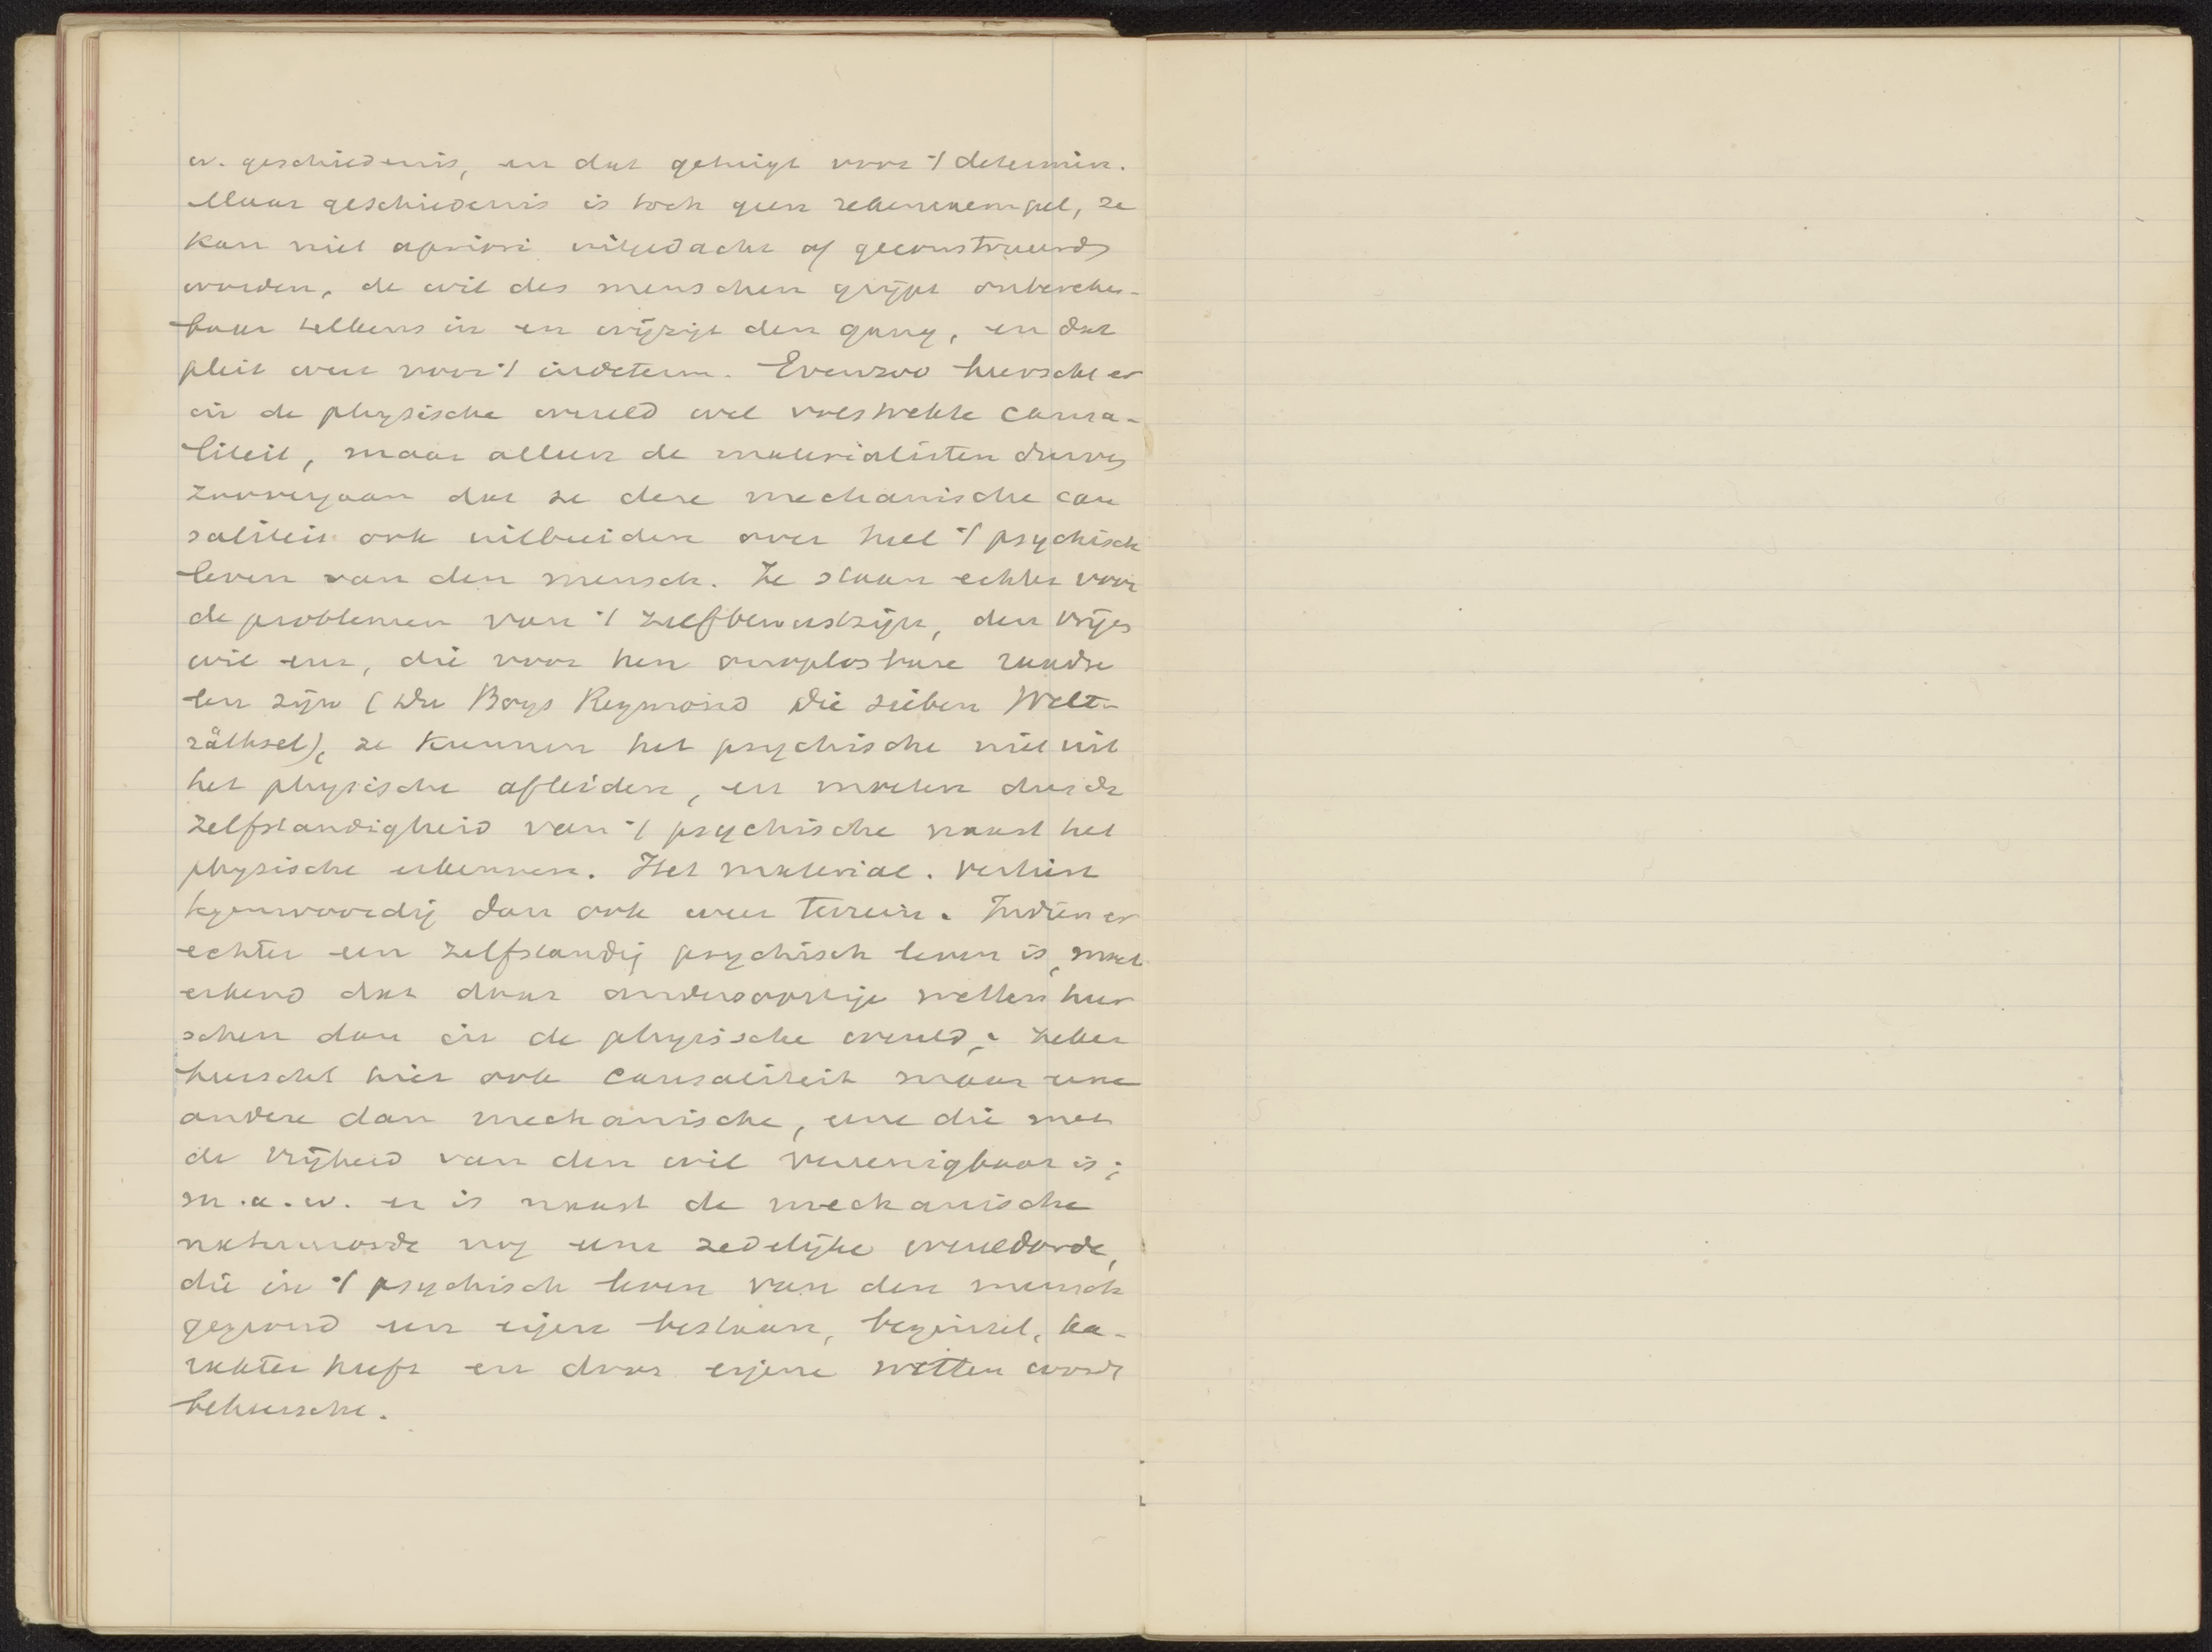 w. geschiedenis, en dat getuigt voor 't determin.
Maar geschiedenis is toch geen rekenexempel, ze
kan niet apriori uitgedacht of geconstrueerd
worden, de wil des menschen grijpt onbereken-
baar telkens in en wijzigt den gang, en dat
pleit weer voor 't indeterm. Evenzoo heerscht er
in de physische wereld wel volstrekte causa-
liteit, maar alleen de materialisten durven
zoover gaan dat ze deze mechanische cau
saliteit ook uitbreiden over heel 't psychisch
leven van den mensch. Ze staan echter voor
de problemen van 't zelfbewustzijn, den vrijen
wil enz, die voor hen onoplosbare raadse
len zijn (Du Boys Reymond Die sieben Welt-
räthsel), ze kunnen het psychische niet uit
het physische afleiden, en moeten dus de
zelfstandigheid van 't psychische naast het
physische erkennen. Het material. verliest
tegenwoordig dan ook weer terrein. Indien er
echter een zelfstandig psychisch leven is, moet
erkend dat daar andersoortige wetten heer
schen dan in de physische wereld; zeker
heerscht hier ook causaliteit maar eene
andere dan mechanische, eene die met
de vrijheid van den wil vereenigbaar is;
m.a.w. er is naast de mechanische
natuurorde nog eene zedelijke wereldorde,
die in 't psychisch leven van den mensch
gegrond een eigen bestaan, beginsel, ka-
rakter heeft en door eigene wetten wordt
beheerscht.